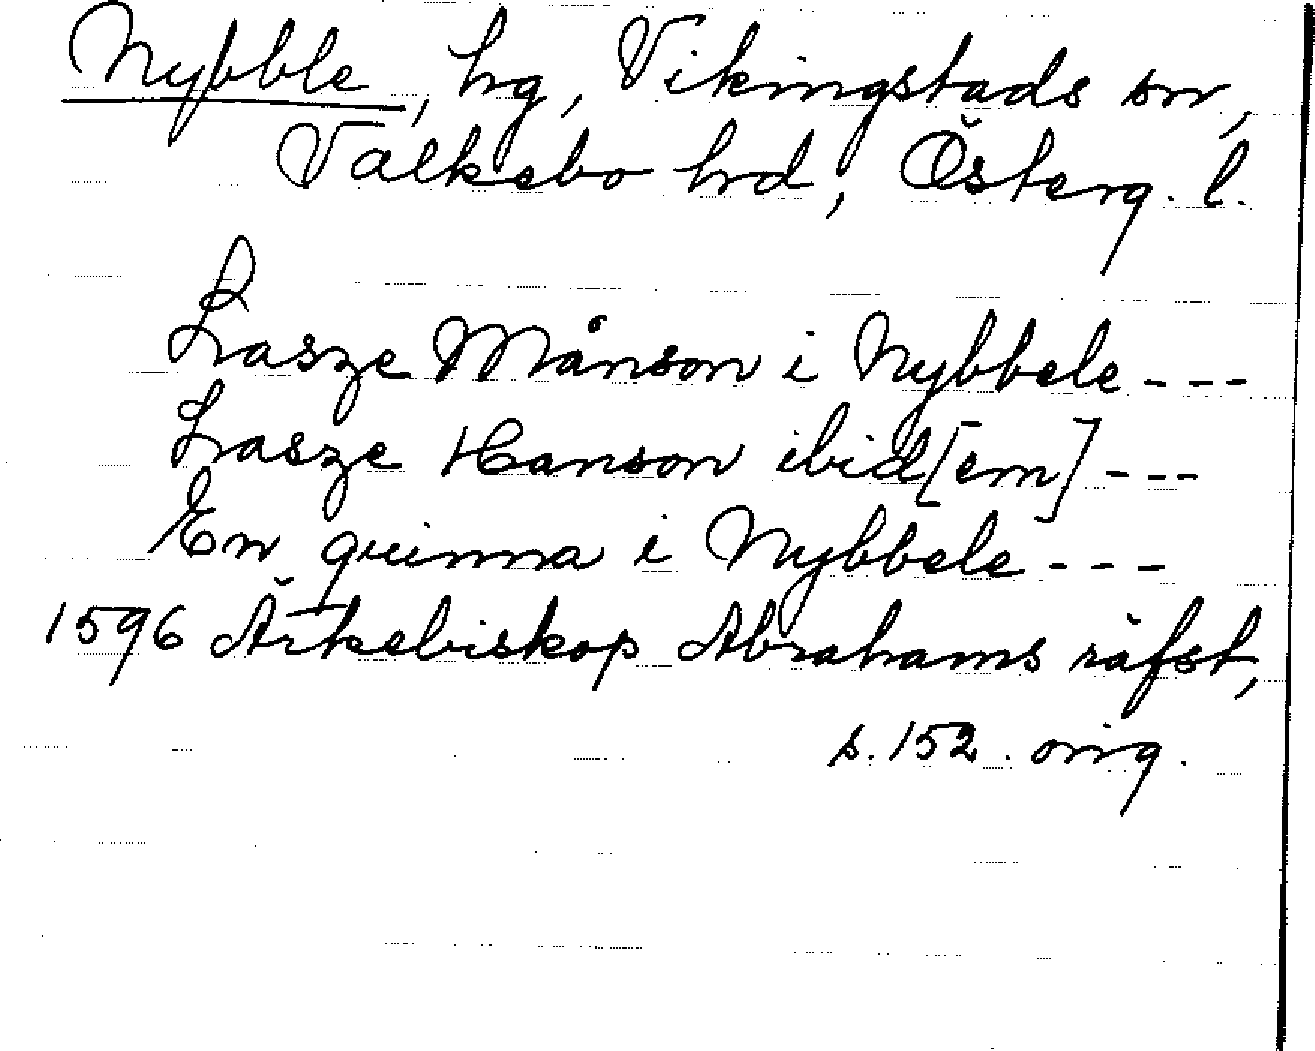 Nybble, hg, Vikingstads sn,
Valkebo hd, Österg. l.
Lasze Månson i Nybbele ---
Lasze Hanson ibid[em] ---
En quinna i Nybbele ---
1596 Ärkebiskop Abrahams räfst,
s. 152. orig.